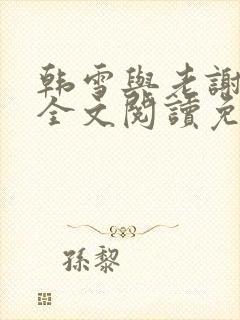 韩雪與老謝
全文閱讀免
孫黎